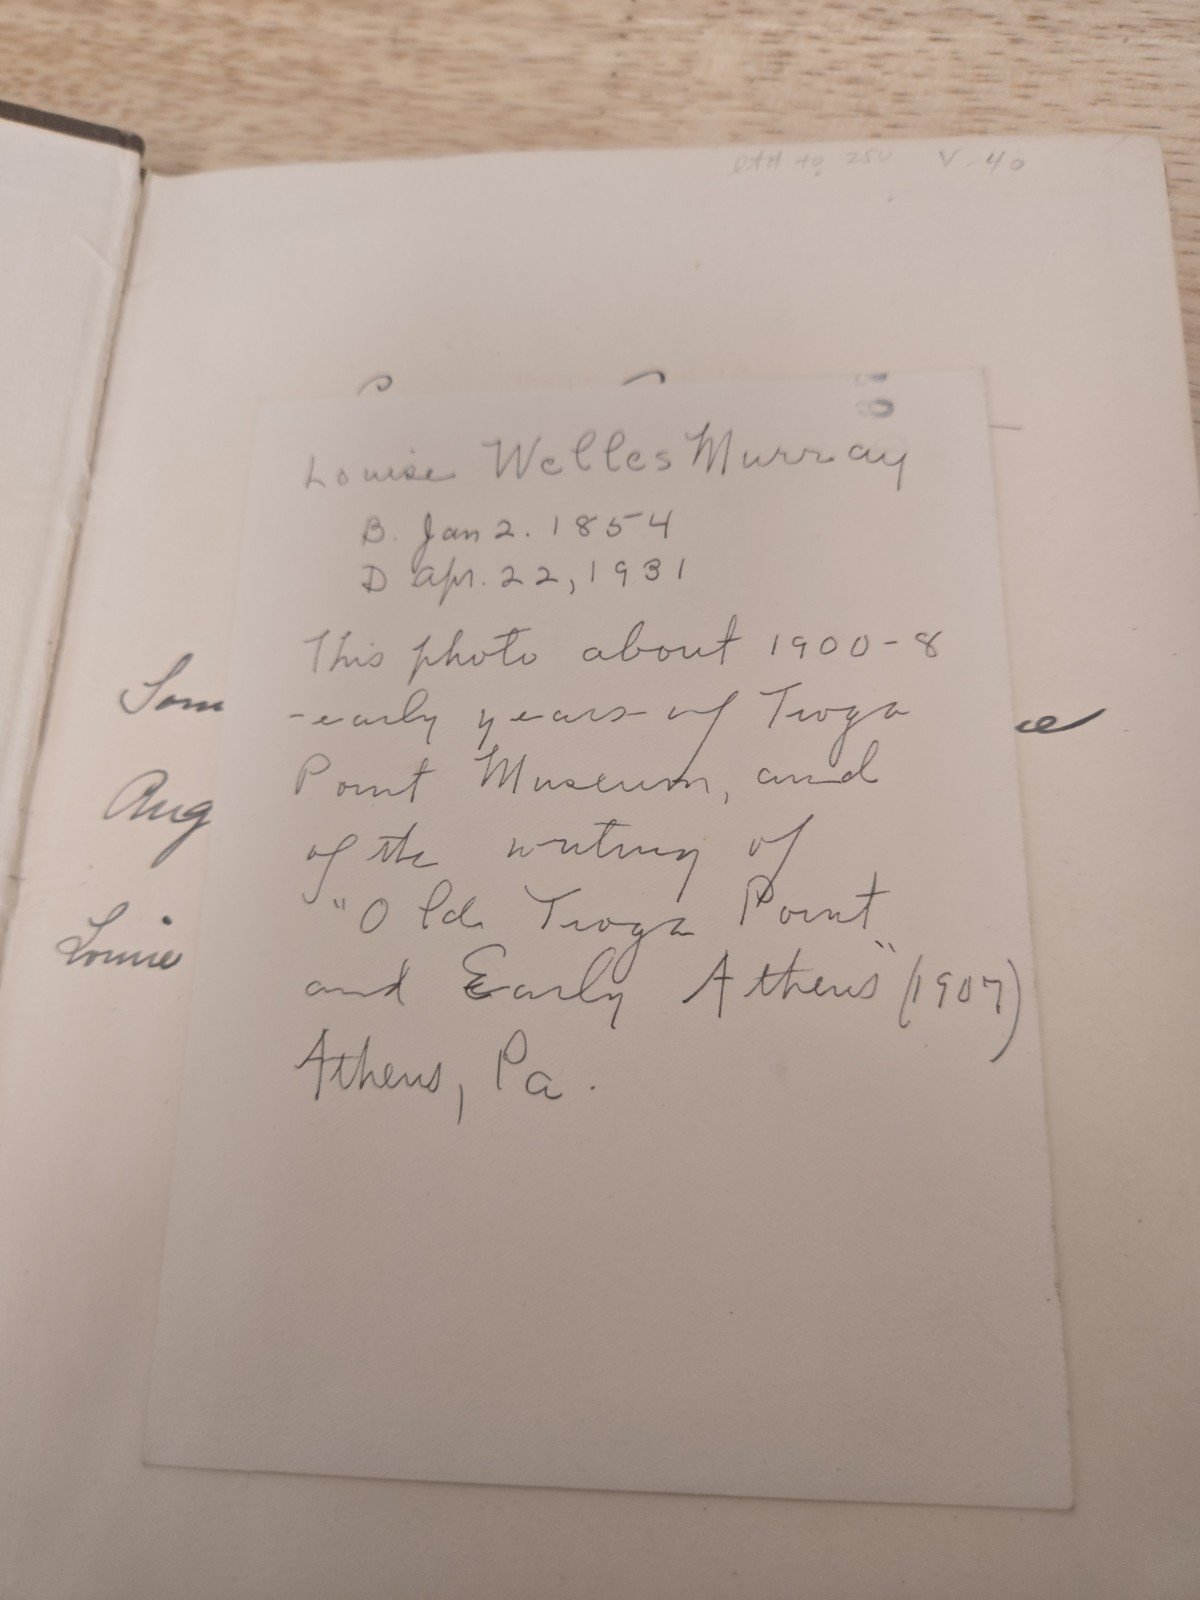 250 V-40
Louise Welles Murray
B. Jan 2. 1854
D Apr. 22, 1931
This photo about 1900-8
-early years of Tioga
Point Museum, and
of the writing of
"Old Tioga Point
and Early Athens" (1907)
Athens, Pa.
Aug